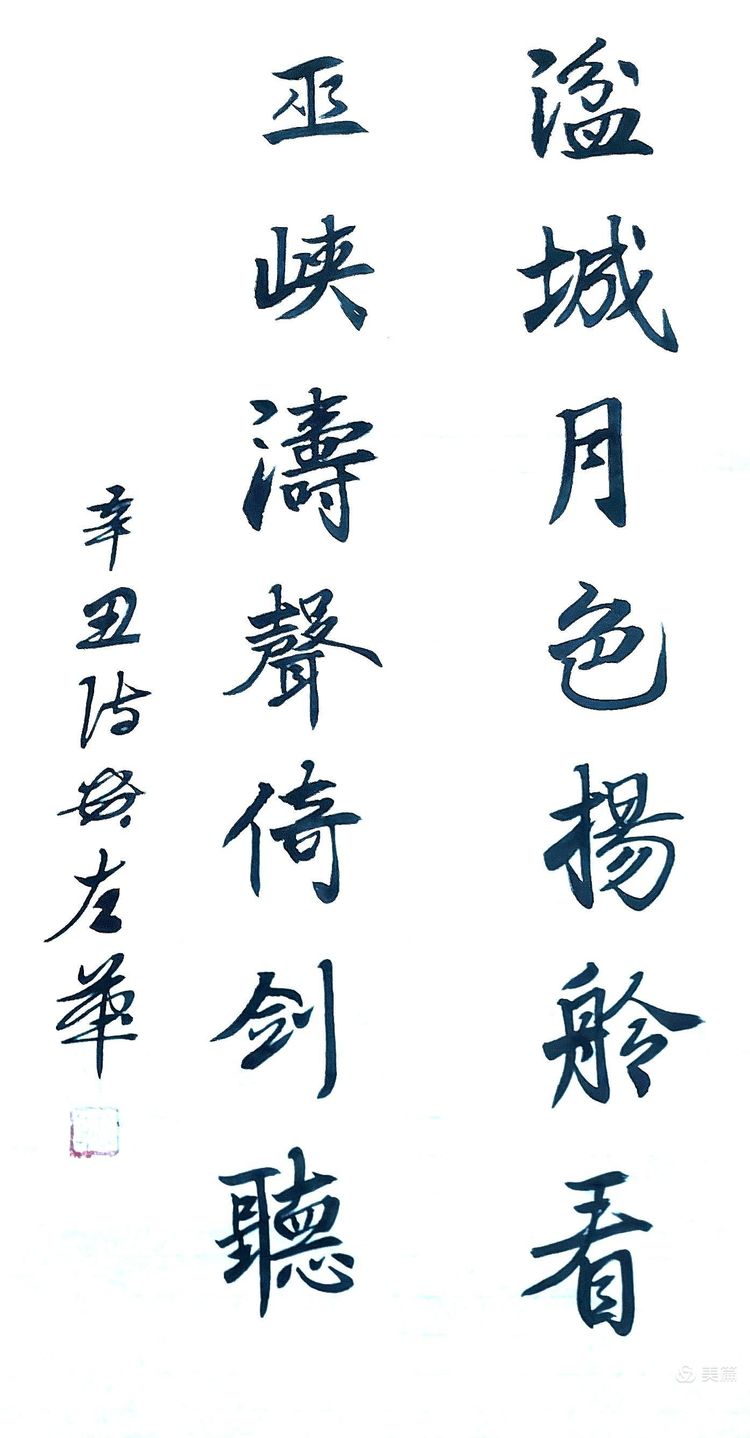 湓城月色揚舲看
巫峽濤聲倚剑聽
辛丑诗赞左華
美篇